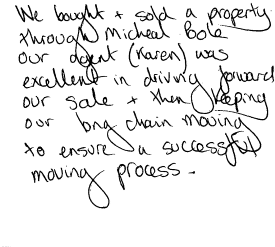 We bought + sold a property
through Micheal Bole
our agent (Karen) was
excellent in driving forward
our sale + then keeping
our long chain moving
to ensure a successful
moving process.